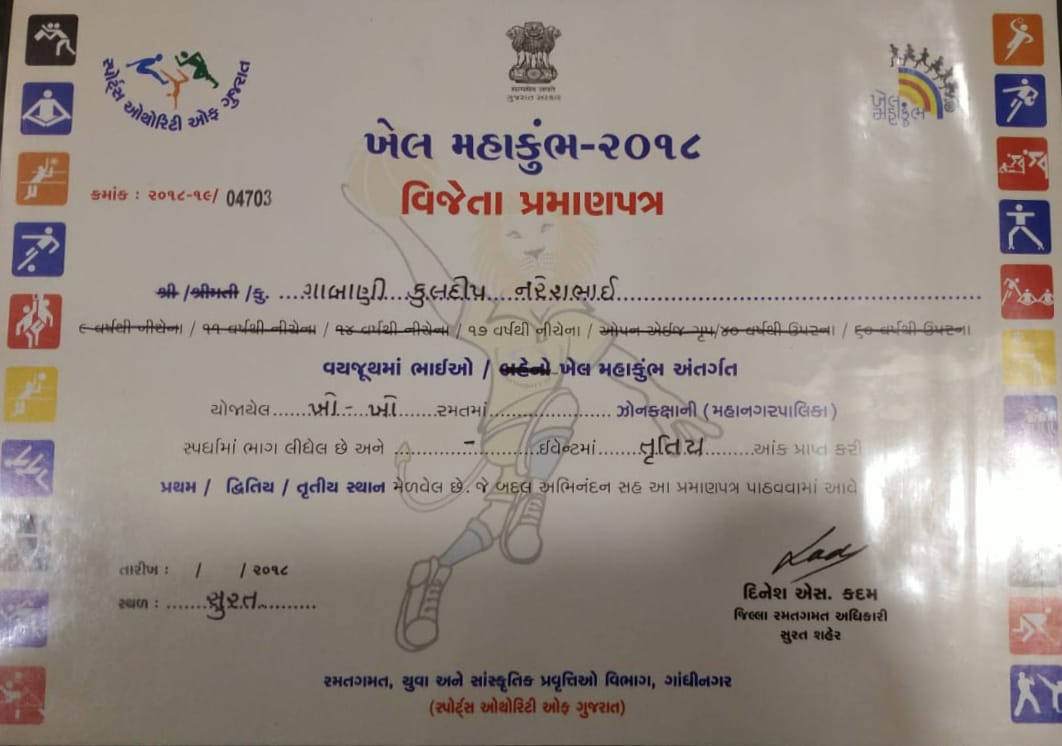 સ્પોર્ટ્સ ઓથોરિટી ઓફ ગુજરાત
सत्यमेव जयते
ગુજરાત સરકાર
ખેલ મહાકુંભ
ખેલ મહાકુંભ-૨૦૧૮
વિજેતા પ્રમાણપત્ર
ક્રમાંક : ૨૦૧૮-૧૯/ 04703
શ્રી /શ્રીમતી /કુ. ....ગાબાણી....કુલદીપ....નરેશભાઈ..........
૯ વર્ષથી નીચેના / ૧૧ વર્ષથી નીચેના / ૧૪ વર્ષથી નીચેના / ૧૭ વર્ષથી નીચેના / ઓપન એઈજ ગૃપ/૪૦ વર્ષથી ઉપરના / ૬૦ વર્ષથી ઉપરના
વયજૂથમાં ભાઈઓ / બહેનો ખેલ મહાકુંભ અંતર્ગત
યોજાયેલ......ખો-ખો......રમતમાં.................... ઝોનકક્ષાની (મહાનગરપાલિકા)
સ્પર્ધામાં ભાગ લીધેલ છે અને ...........-..........ઈવેન્ટમાં .......તૃતિય.........આંક પ્રાપ્ત કરી
પ્રથમ / દ્વિતિય / તૃતીય સ્થાન મેળવેલ છે. જે બદલ અભિનંદન સહ આ પ્રમાણપત્ર પાઠવવામાં આવે
તારીખ : / / ૨૦૧૮
સ્થળ : .......સુરત...........
દિનેશ એસ. કદમ
જિલ્લા રમતગમત અધિકારી
સુરત શહેર
રમતગમત, યુવા અને સાંસ્કૃતિક પ્રવૃત્તિઓ વિભાગ, ગાંધીનગર
(સ્પોર્ટ્સ ઓથોરિટી ઓફ ગુજરાત)